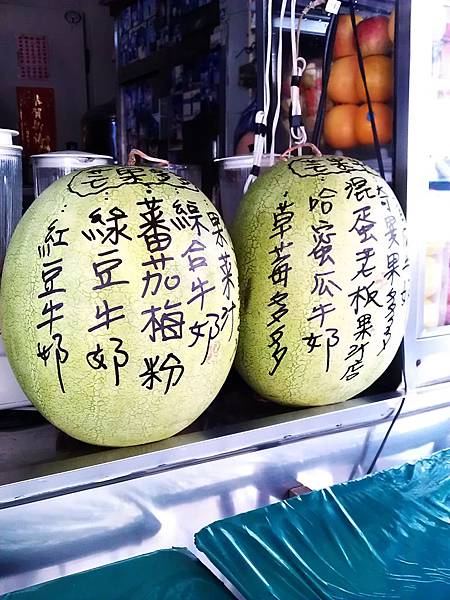 芒果
果菜汁
綜合牛奶
蕃茄梅粉
綠豆牛奶
紅豆牛奶
芒果
奇異果多多
混蛋老板果汁店
哈蜜瓜牛奶
草莓多多